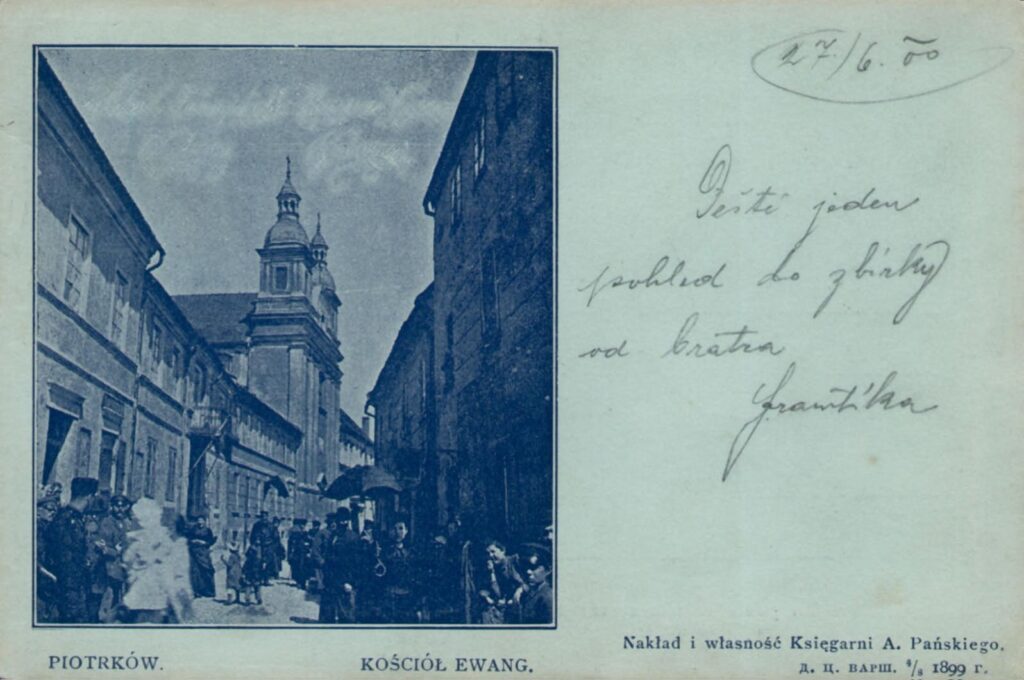 27/6. 00
Ještě jeden
pohled do zbírky
od bratra
Františka
PIOTRKÓW.
KOŚCIÓŁ EWANG.
Nakład i własność Księgarni A. Pańskiego.
Д. Ц. ВАРШ. 4/8 1899 г.